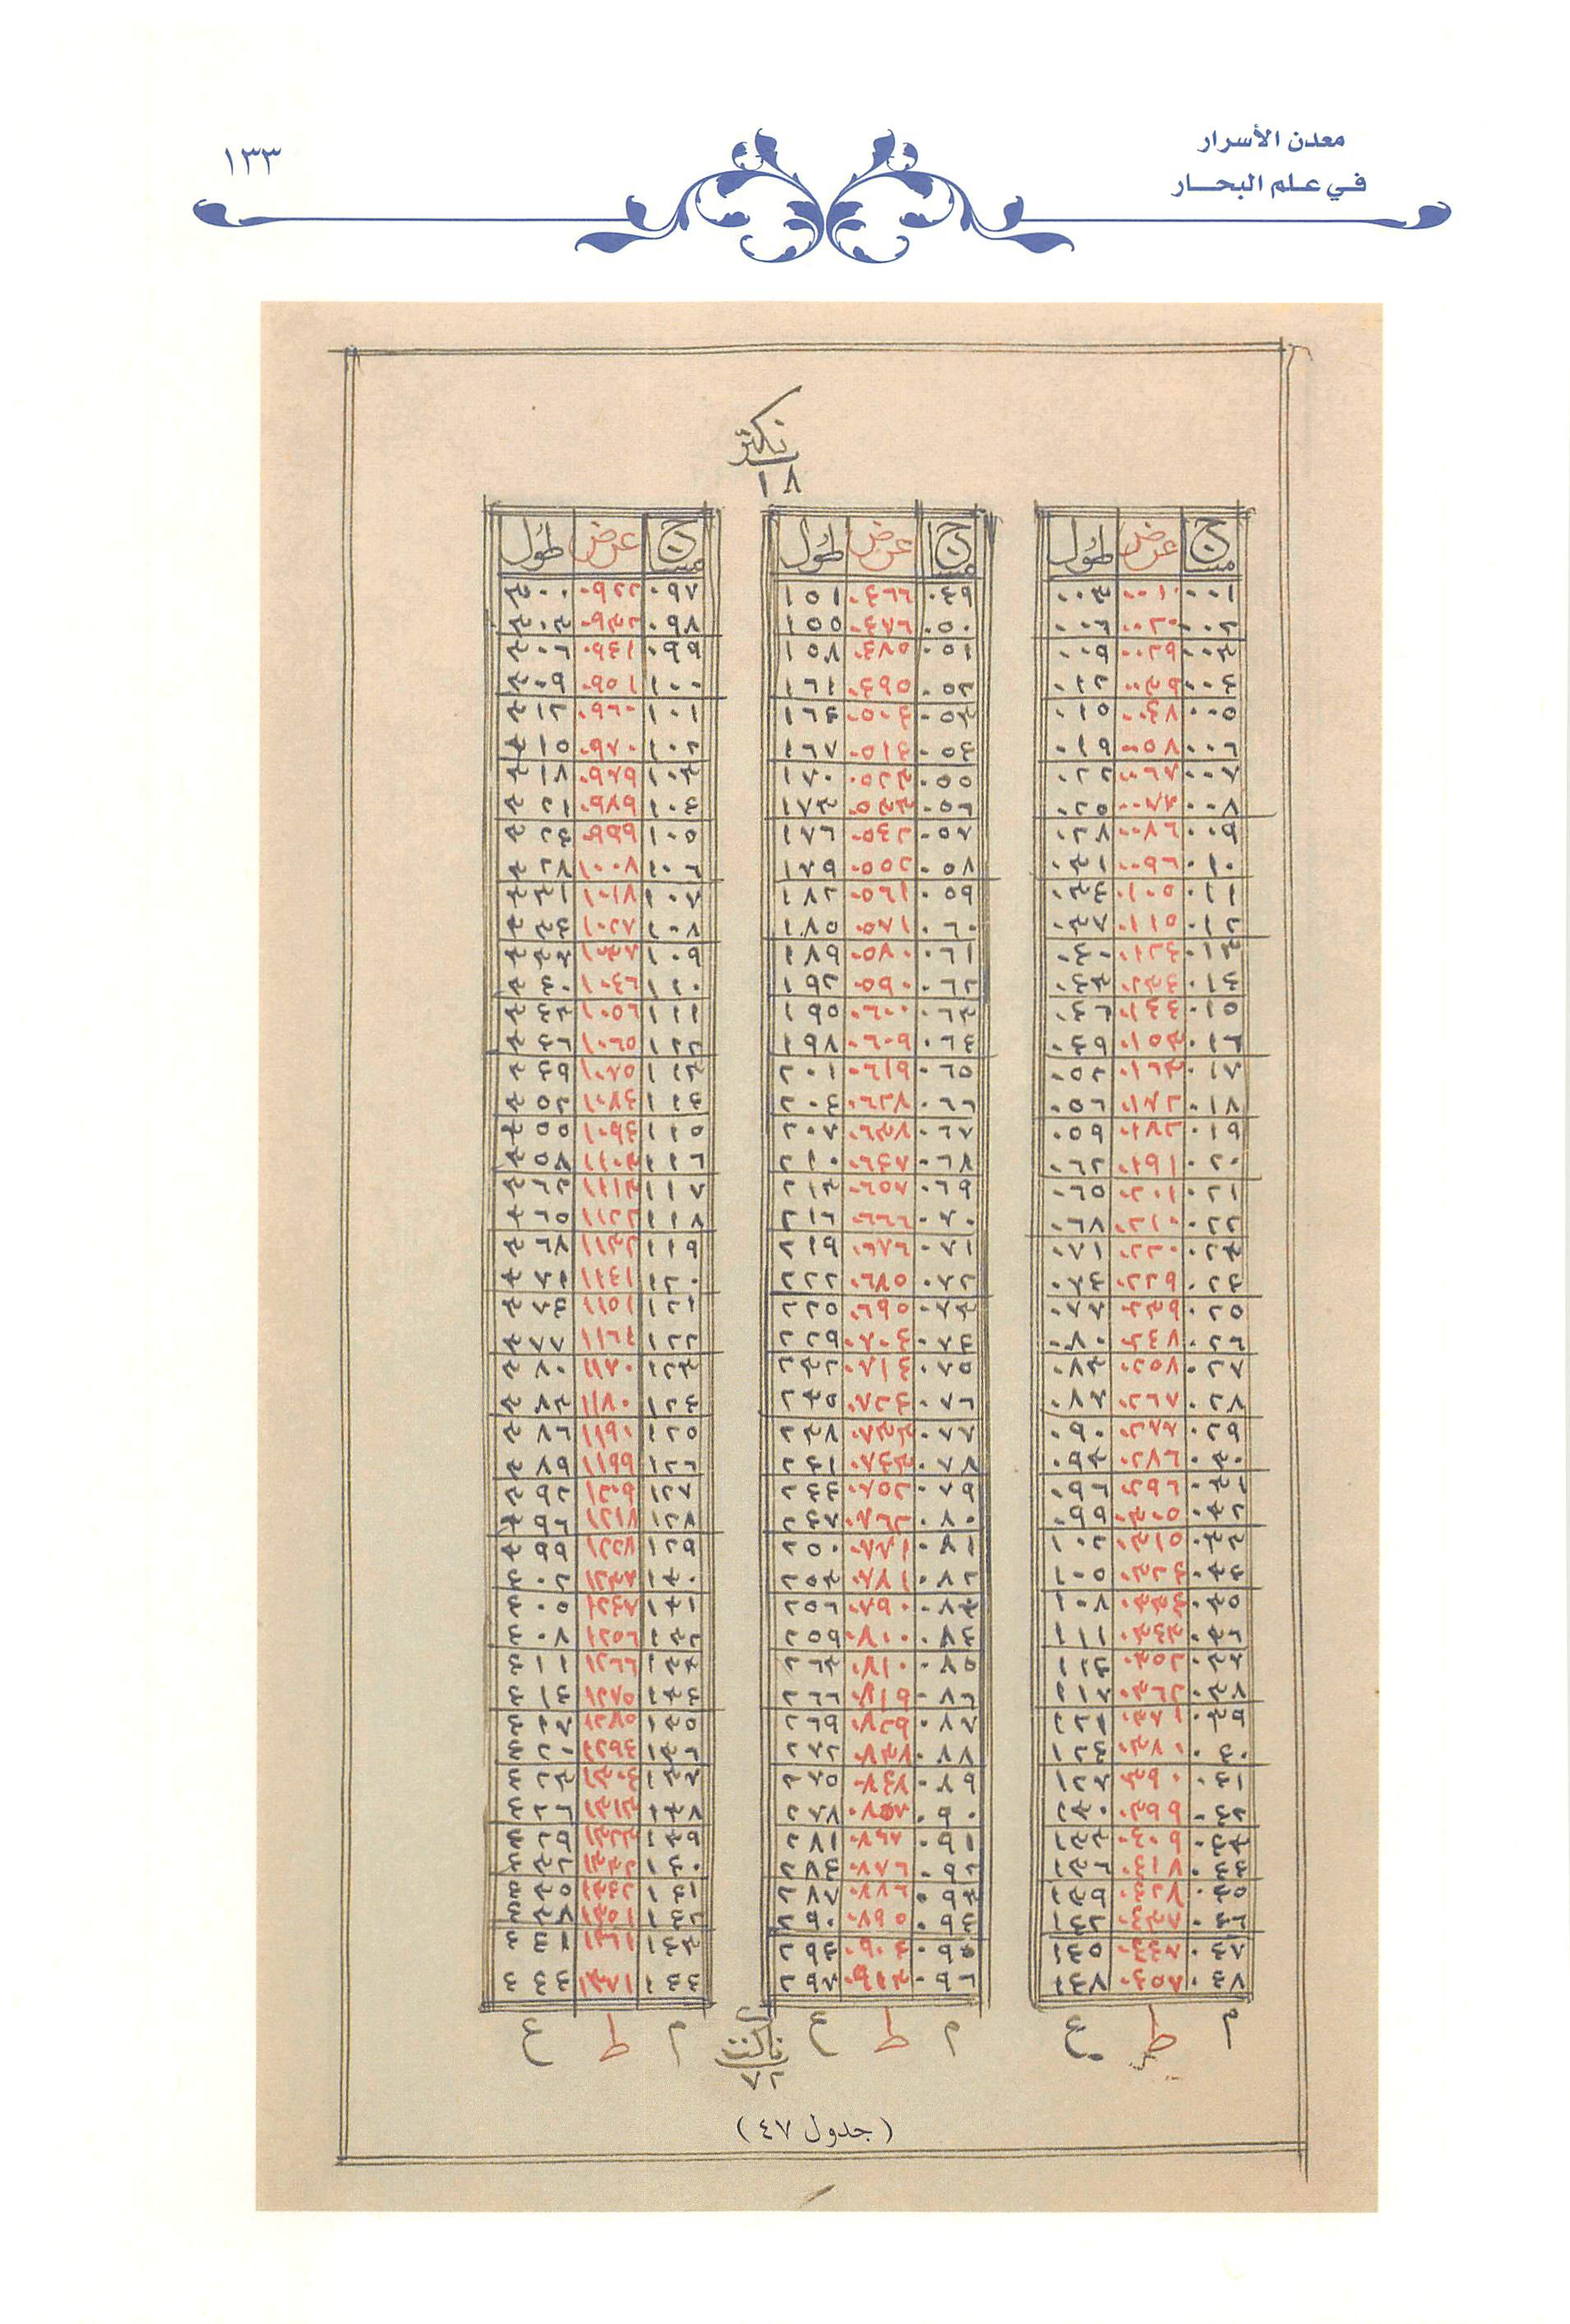 معدن الأسرار
في علم البحار
١٣٣
نكتر
١٨
مساج عرض طول
٠٠١ ٠٠١٠ ٠٠٣
٠٠٢ ٠٠٢٠ ٠٠٦
٠٠٣ ٠٠٢٩ ٠٠٩
٠٠٤ ٠٠٣٩ ٠١٢
٠٠٥ ٠٠٤٨ ٠١٥
٠٠٦ ٠٠٥٨ ٠١٩
٠٠٧ ٠٠٦٧ ٠٢٢
٠٠٨ ٠٠٧٧ ٠٢٥
٠٠٩ ٠٠٨٦ ٠٢٨
٠١٠ ٠٠٩٦ ٠٣١
٠١١ ٠١٠٥ ٠٣٤
٠١٢ ٠١١٥ ٠٣٧
٠١٣ ٠١٢٤ ٠٤٠
٠١٤ ٠١٣٤ ٠٤٣
٠١٥ ٠١٤٤ ٠٤٦
٠١٦ ٠١٥٣ ٠٤٩
٠١٧ ٠١٦٣ ٠٥٢
٠١٨ ٠١٧٢ ٠٥٦
٠١٩ ٠١٨٢ ٠٥٩
٠٢٠ ٠١٩١ ٠٦٢
٠٢١ ٠٢٠١ ٠٦٥
٠٢٢ ٠٢١٠ ٠٦٨
٠٢٣ ٠٢٢٠ ٠٧١
٠٢٤ ٠٢٢٩ ٠٧٤
٠٢٥ ٠٢٣٩ ٠٧٧
٠٢٦ ٠٢٤٨ ٠٨٠
٠٢٧ ٠٢٥٧ ٠٨٣
٠٢٨ ٠٢٦٧ ٠٨٧
٠٢٩ ٠٢٧٧ ٠٩٠
٠٣٠ ٠٢٨٦ ٠٩٣
٠٣١ ٠٢٩٦ ٠٩٦
٠٣٢ ٠٣٠٥ ٠٩٩
٠٣٣ ٠٣١٥ ١٠٢
٠٣٤ ٠٣٢٤ ١٠٥
٠٣٥ ٠٣٣٤ ١٠٨
٠٣٦ ٠٣٤٣ ١١١
٠٣٧ ٠٣٥٢ ١١٤
٠٣٨ ٠٣٦٢ ١١٧
٠٣٩ ٠٣٧١ ١٢١
٠٤٠ ٠٣٨٠ ١٢٤
٠٤١ ٠٣٩٠ ١٢٧
٠٤٢ ٠٣٩٩ ١٣٠
٠٤٣ ٠٤٠٩ ١٣٣
٠٤٤ ٠٤١٨ ١٣٦
٠٤٥ ٠٤٢٨ ١٣٩
٠٤٦ ٠٤٣٨ ١٤٢
٠٤٧ ٠٤٤٧ ١٤٥
٠٤٨ ٠٤٥٧ ١٤٧
م ط ع
مساج عرض طول
٠٤٩ ٠٤٦٦ ١٥١
٠٥٠ ٠٤٧٦ ١٥٥
٠٥١ ٠٤٨٥ ١٥٨
٠٥٢ ٠٤٩٥ ١٦١
٠٥٣ ٠٥٠٤ ١٦٤
٠٥٤ ٠٥١٤ ١٦٧
٠٥٥ ٠٥٢٣ ١٧٠
٠٥٦ ٠٥٣٣ ١٧٣
٠٥٧ ٠٥٤٢ ١٧٦
٠٥٨ ٠٥٥٢ ١٧٩
٠٥٩ ٠٥٦١ ١٨٢
٠٦٠ ٠٥٧١ ١٨٥
٠٦١ ٠٥٨٠ ١٨٩
٠٦٢ ٠٥٩٠ ١٩٢
٠٦٣ ٠٦٠٠ ١٩٥
٠٦٤ ٠٦٠٩ ١٩٨
٠٦٥ ٠٦١٩ ٢٠١
٠٦٦ ٠٦٢٨ ٢٠٤
٠٦٧ ٠٦٣٨ ٢٠٧
٠٦٨ ٠٦٤٧ ٢١٠
٠٦٩ ٠٦٥٧ ٢١٣
٠٧٠ ٠٦٦٦ ٢١٦
٠٧١ ٠٦٧٦ ٢١٩
٠٧٢ ٠٦٨٥ ٢٢٢
٠٧٣ ٠٦٩٥ ٢٢٥
٠٧٤ ٠٧٠٤ ٢٢٩
٠٧٥ ٠٧١٤ ٢٣٢
٠٧٦ ٠٧٢٤ ٢٣٥
٠٧٧ ٠٧٣٣ ٢٣٨
٠٧٨ ٠٧٤٣ ٢٤١
٠٧٩ ٠٧٥٢ ٢٤٤
٠٨٠ ٠٧٦٢ ٢٤٧
٠٨١ ٠٧٧١ ٢٥٠
٠٨٢ ٠٧٨١ ٢٥٣
٠٨٣ ٠٧٩٠ ٢٥٦
٠٨٤ ٠٨٠٠ ٢٥٩
٠٨٥ ٠٨١٠ ٢٦٣
٠٨٦ ٠٨١٩ ٢٦٦
٠٨٧ ٠٨٢٩ ٢٦٩
٠٨٨ ٠٨٣٨ ٢٧٢
٠٨٩ ٠٨٤٧ ٢٧٥
٠٩٠ ٠٨٥٧ ٢٧٨
٠٩١ ٠٨٦٧ ٢٨١
٠٩٢ ٠٨٧٦ ٢٨٤
٠٩٣ ٠٨٨٦ ٢٨٧
٠٩٤ ٠٨٩٥ ٢٩٠
٠٩٥ ٠٩٠٤ ٢٩٤
٠٩٦ ٠٩١٣ ٢٩٧
م ط ع
مساج عرض طول
٠٩٧ ٠٩٢٢ ٣٠٠
٠٩٨ ٠٩٣٢ ٣٠٣
٠٩٩ ٠٩٤١ ٣٠٦
١٠٠ ٠٩٥١ ٣٠٩
١٠١ ٠٩٦٠ ٣١٢
١٠٢ ٠٩٧٠ ٣١٥
١٠٣ ٠٩٧٩ ٣١٨
١٠٤ ٠٩٨٩ ٣٢١
١٠٥ ٠٩٩٩ ٣٢٤
١٠٦ ١٠٠٨ ٣٢٨
١٠٧ ١٠١٨ ٣٣١
١٠٨ ١٠٢٧ ٣٣٤
١٠٩ ١٠٣٧ ٣٣٧
١١٠ ١٠٤٦ ٣٤٠
١١١ ١٠٥٦ ٣٤٣
١١٢ ١٠٦٥ ٣٤٦
١١٣ ١٠٧٥ ٣٤٩
١١٤ ١٠٨٤ ٣٥٢
١١٥ ١٠٩٤ ٣٥٥
١١٦ ١١٠٣ ٣٥٨
١١٧ ١١١٣ ٣٦٢
١١٨ ١١٢٢ ٣٦٥
١١٩ ١١٣٢ ٣٦٨
١٢٠ ١١٤١ ٣٧١
١٢١ ١١٥١ ٣٧٤
١٢٢ ١١٦١ ٣٧٧
١٢٣ ١١٧٠ ٣٨٠
١٢٤ ١١٨٠ ٣٨٣
١٢٥ ١١٩٠ ٣٨٦
١٢٦ ١١٩٩ ٣٨٩
١٢٧ ١٢٠٩ ٣٩٢
١٢٨ ١٢١٨ ٣٩٦
١٢٩ ١٢٢٧ ٣٩٩
١٣٠ ١٢٣٧ ٤٠٢
١٣١ ١٢٤٧ ٤٠٥
١٣٢ ١٢٥٦ ٤٠٨
١٣٣ ١٢٦٦ ٤١١
١٣٤ ١٢٧٥ ٤١٤
١٣٥ ١٢٨٥ ٤١٧
١٣٦ ١٢٩٤ ٤٢٠
١٣٧ ١٣٠٤ ٤٢٣
١٣٨ ١٣١٣ ٤٢٦
١٣٩ ١٣٢٣ ٤٢٩
١٤٠ ١٣٣٢ ٤٣٢
١٤١ ١٣٤٢ ٤٣٥
١٤٢ ١٣٥١ ٤٣٨
١٤٣ ١٣٦١ ٤٤١
١٤٤ ١٣٧١ ٤٤٤
م ط ع
٧٢
(جدول ٤٧)